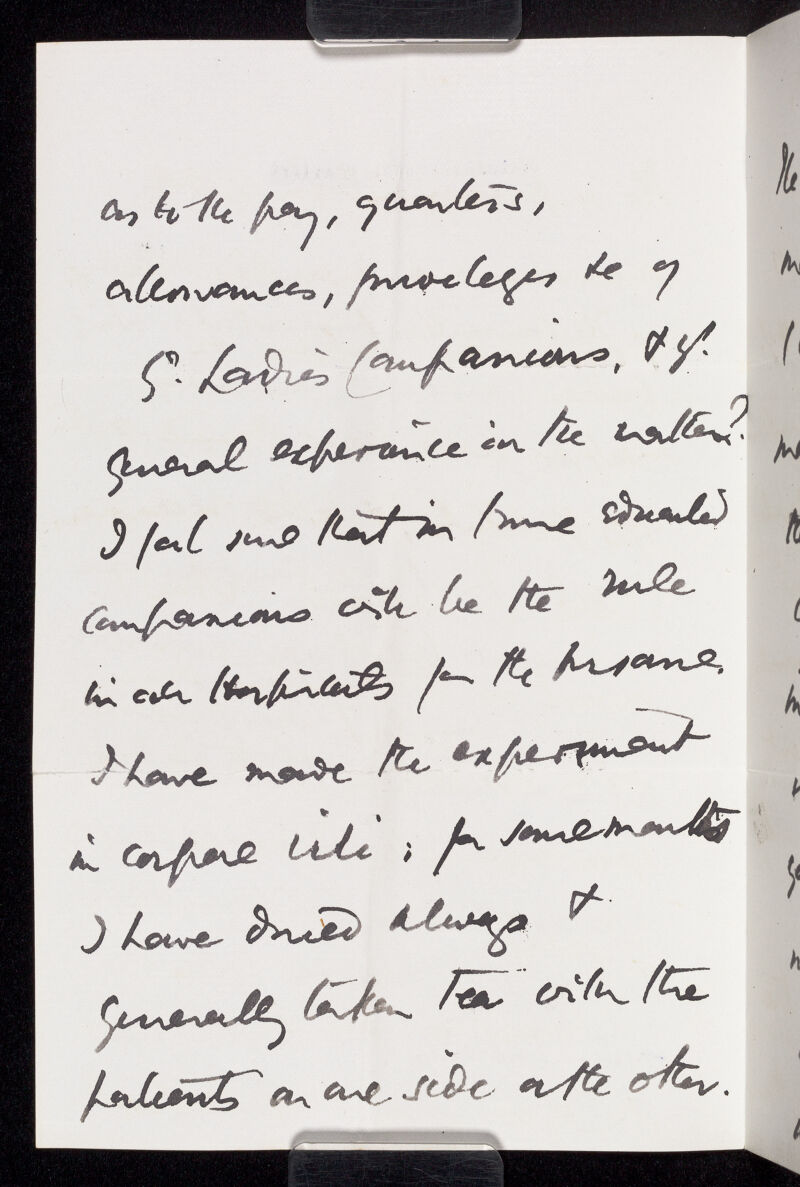 as to the pay, quarters,
allowances, privileges &c of
yr. Ladies Companions, & yr.
general experience in the matter?
I feel sure that in time educated
companions will be the rule
in our Hospitals for the Insane.
I have made the experiment
in corpore vili; for some months
I have dined always &
generally taken Tea with the
patients on one side or the other.